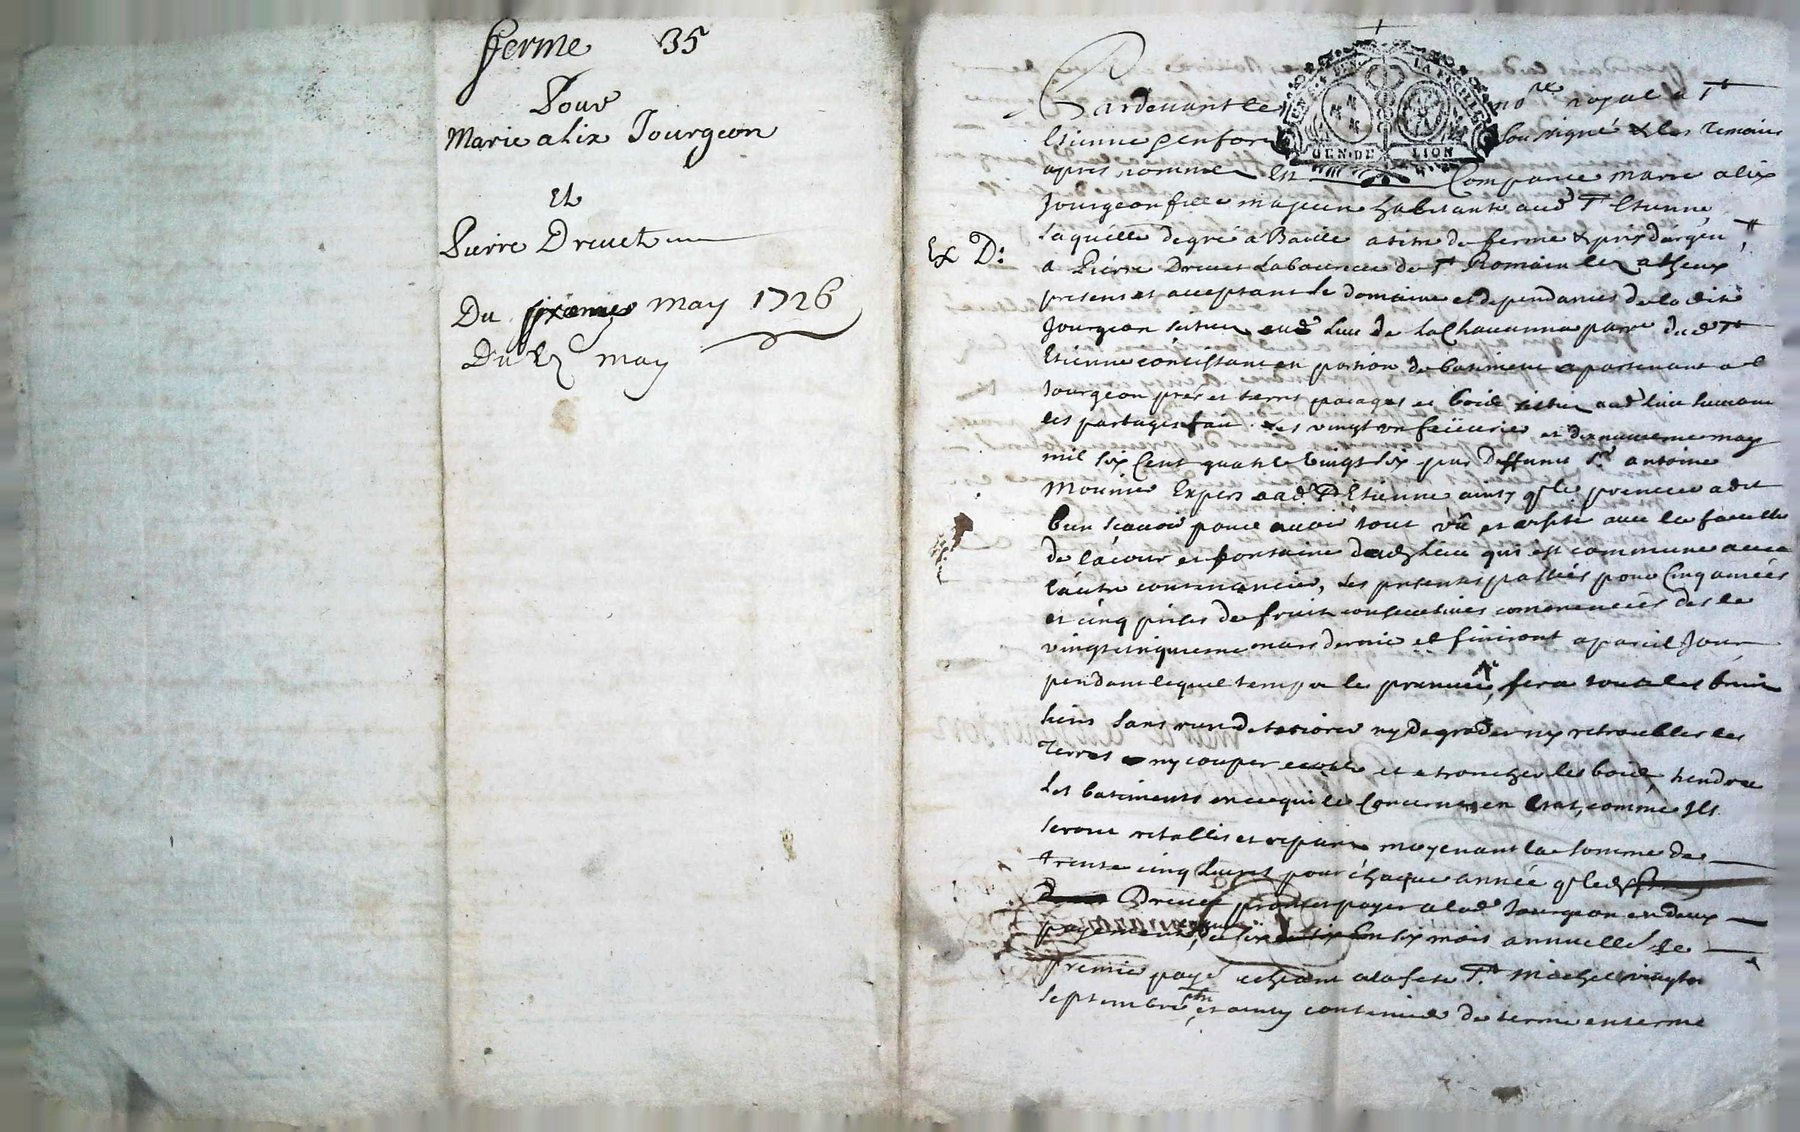 ferme 35
Pour
Marie alix Jourgeon
Et
Pierre Drevet
Du sixieme may 1726
Du 6 may
Ex D:
GEN DE LION
Pardevant le no.re royal a St
Etienne en fore sousigné & les temoins
apres nommé Est Comparue Marie alix
Jourgeon fille majeure habitante aud St Etienne
laquelle de gré a Baillé a titre de ferme & prix d'argen
a Pierre Drevet Laboureur de St Romain les atheux
present et acceptant le domaine et dependances de la dite
Jourgeon situé aud lieu de la Chavanna parr. dud St
Etienne concistant en portion de batiment apartenant a lad
Jourgeon prés et terres pacages et bois situé aud lieu suivant
les partages fait les vingt un et dixneuvieme may
mil six Cent quatre vingt six par Deffunct Sr antoine
Mounier Expers aud St Etienne ainsy q le preneur a dit
bien scavoir pour avoir tout vû et visité avec la faculté
de la cour et fontaine dud Lieu qui est commune avec
l'autre contenancier, les presentes passées pour Cinq années
et cinq prises de fruit consecutives commencées des le
vingt cinquieme mars dernier et finiront a pareil Jour
pendant lequel temps le preneur fera tout
sans rien deteriorer ny degrader ny retroubler les
Terres ny couper et etroncher les bois tiendra
Les batiments en ce qui le Concerne en Etat, comme Ils
seront retablis et reparés moyenant la somme de
trente cinq Livres pour chaque année q led
Drevet promet payer a lad Jourgeon en deux
payements de six en six mois annuelle le
premier paye echeant a la fete St Michel vingt
Septembre et ainsy continuer de terme en terme